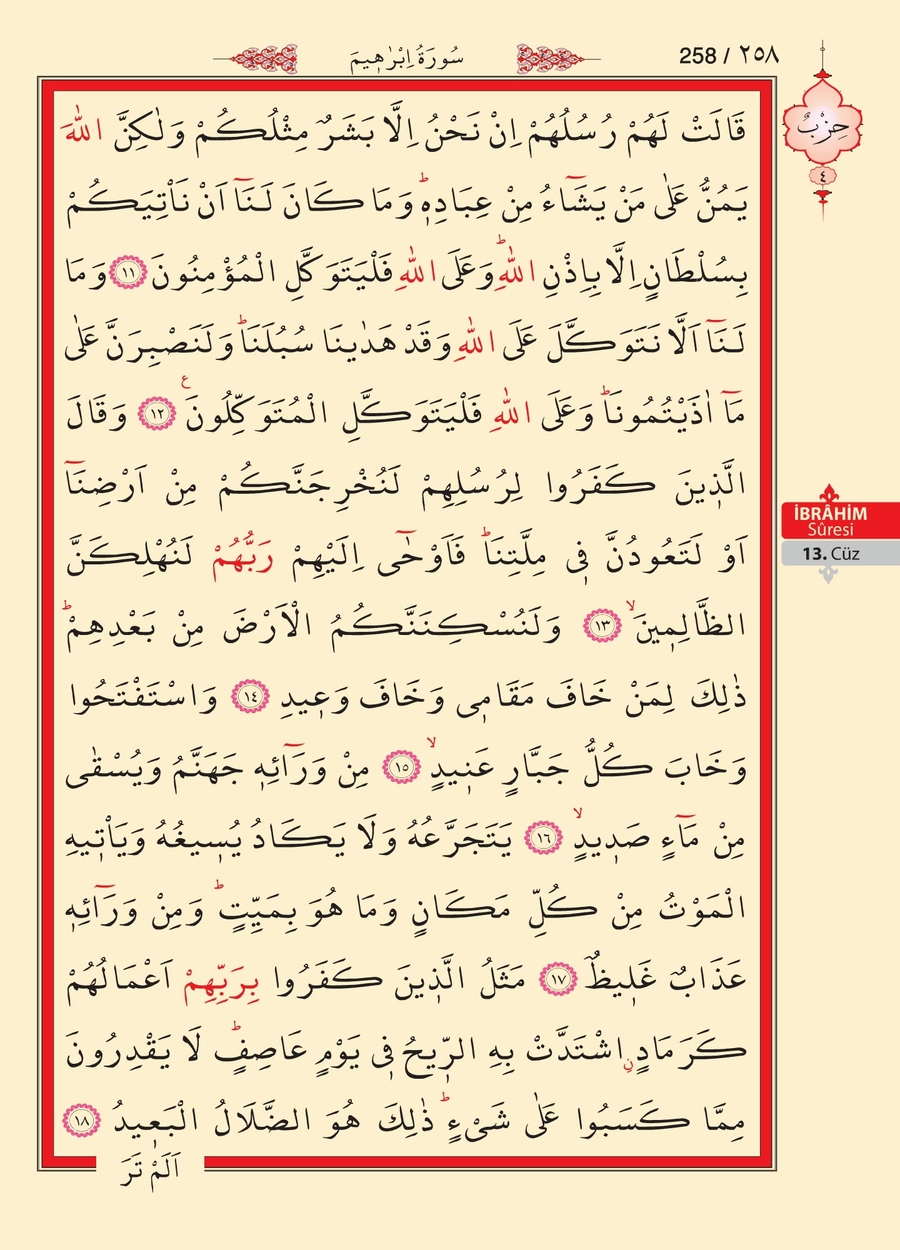 258 / ٢٥٨
سُورَةُ اِبْرٰه۪يمَ
حِزْبٌ
٤
قَالَتْ لَهُمْ رُسُلُهُمْ اِنْ نَحْنُ اِلَّا بَشَرٌ مِثْلُكُمْ وَلٰكِنَّ اللّٰهَ
يَمُنُّ عَلٰى مَنْ يَشَٓاءُ مِنْ عِبَادِه۪ۜ وَمَا كَانَ لَنَٓا اَنْ نَأْتِيَكُمْ
بِسُلْطَانٍ اِلَّا بِاِذْنِ اللّٰهِۜ وَعَلَى اللّٰهِ فَلْيَتَوَكَّلِ الْمُؤْمِنُونَ ﴿١١﴾ وَمَا
لَنَٓا اَلَّا نَتَوَكَّلَ عَلَى اللّٰهِ وَقَدْ هَدٰينَا سُبُلَنَاۜ وَلَنَصْبِرَنَّ عَلٰى
مَٓا اٰذَيْتُمُونَاۜ وَعَلَى اللّٰهِ فَلْيَتَوَكَّلِ الْمُتَوَكِّلُونَ۟ ﴿١٢﴾ وَقَالَ
الَّذ۪ينَ كَفَرُوا لِرُسُلِهِمْ لَنُخْرِجَنَّكُمْ مِنْ اَرْضِنَٓا
اَوْ لَتَعُودُنَّ ف۪ي مِلَّتِنَاۜ فَاَوْحٰٓى اِلَيْهِمْ رَبُّهُمْ لَنُهْلِكَنَّ
الظَّالِم۪ينَۙ ﴿١٣﴾ وَلَنُسْكِنَنَّكُمُ الْاَرْضَ مِنْ بَعْدِهِمْۜ
ذٰلِكَ لِمَنْ خَافَ مَقَام۪ي وَخَافَ وَع۪يدِ ﴿١٤﴾ وَاسْتَفْتَحُوا
وَخَابَ كُلُّ جَبَّارٍ عَن۪يدٍۙ ﴿١٥﴾ مِنْ وَرَٓائِه۪ جَهَنَّمُ وَيُسْقٰى
مِنْ مَٓاءٍ صَد۪يدٍۙ ﴿١٦﴾ يَتَجَرَّعُهُ وَلَا يَكَادُ يُس۪يغُهُ وَيَأْت۪يهِ
الْمَوْتُ مِنْ كُلِّ مَكَانٍ وَمَا هُوَ بِمَيِّتٍۜ وَمِنْ وَرَٓائِه۪
عَذَابٌ غَل۪يظٌ ﴿١٧﴾ مَثَلُ الَّذ۪ينَ كَفَرُوا بِرَبِّهِمْ اَعْمَالُهُمْ
كَرَمَادٍۨ اشْتَدَّتْ بِهِ الرّ۪يحُ ف۪ي يَوْمٍ عَاصِفٍۜ لَا يَقْدِرُونَ
مِمَّا كَسَبُوا عَلٰى شَيْءٍۜ ذٰلِكَ هُوَ الضَّلَالُ الْبَع۪يدُ ﴿١٨﴾
اَلَمْ تَرَ
İBRÂHİM
Sûresi
13. Cüz